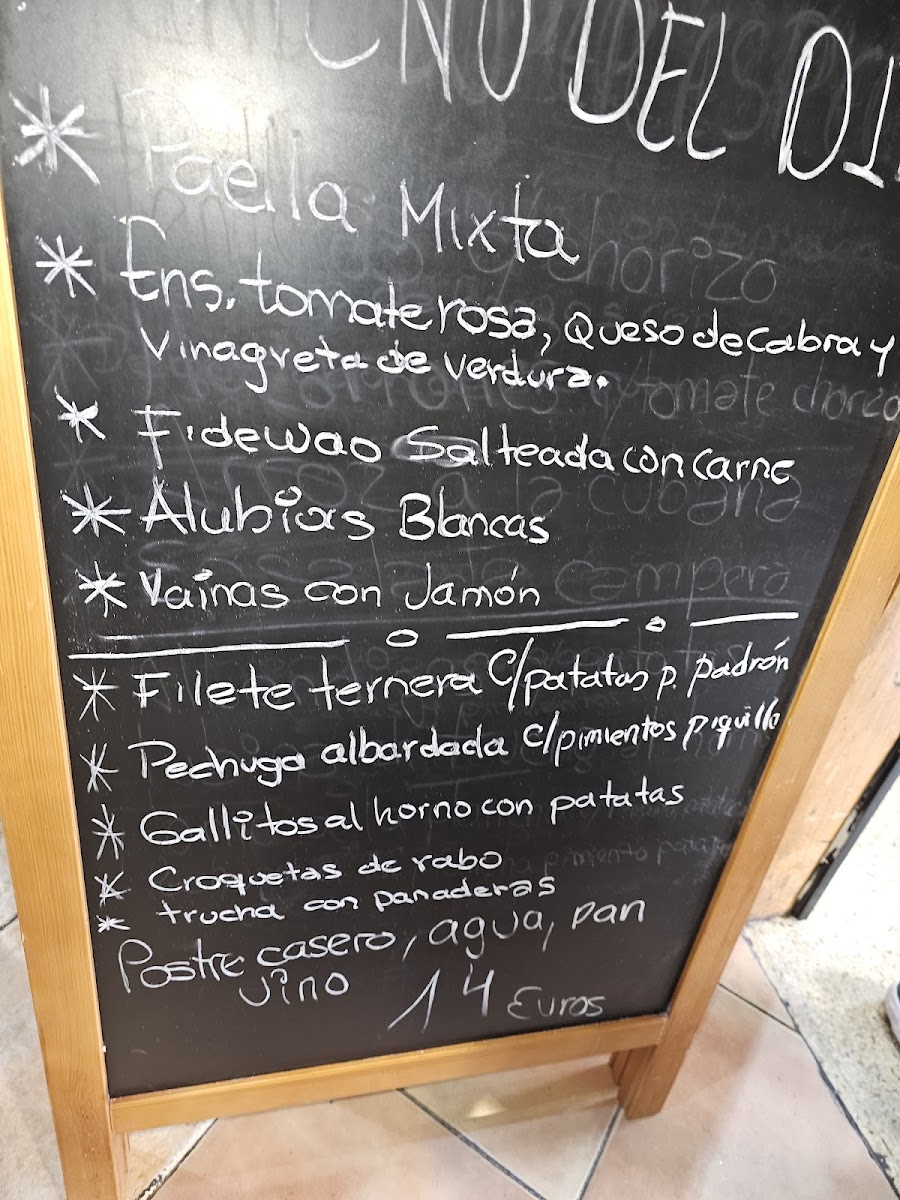 MENÚ DEL DÍA
* Paella Mixta
* Ens. tomate rosa, Queso de Cabra y
Vinagreta de verdura.
* Fidewao Salteada con Carne
* Alubias Blancas
* Vainas con Jamón
* Filete ternera c/patatas p. padrón
* Pechuga albardada c/pimientos piquillo
* Gallitos al horno con patatas
* Croquetas de rabo
* trucha con panaderas
Postre casero, agua, pan
vino 14 Euros